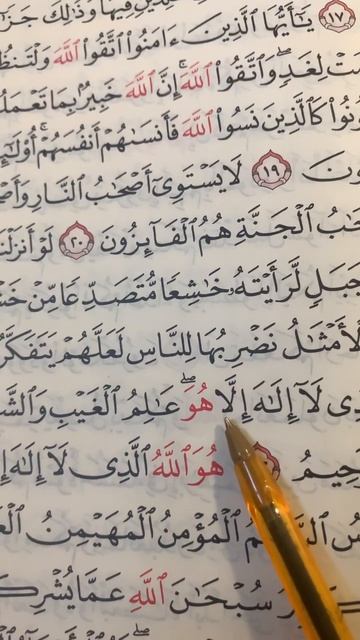 فِيهَا وَذَٰلِكَ
١٧ يَـٰٓأَيُّهَا ٱلَّذِينَ ءَامَنُوا۟ ٱتَّقُوا۟ ٱللَّهَ وَلْتَنظُ
مَتْ لِغَدٍ ۖ وَٱتَّقُوا۟ ٱللَّهَ ۚ إِنَّ ٱللَّهَ خَبِيرٌۢ بِمَا تَعْمَلُ
ونُوا۟ كَٱلَّذِينَ نَسُوا۟ ٱللَّهَ فَأَنسَىٰهُمْ أَنفُسَهُمْ ۚ أُو۟لَـٰٓئِ
ونَ ١٩ لَا يَسْتَوِىٓ أَصْحَـٰبُ ٱلنَّارِ وَأَصْ
حَـٰبُ ٱلْجَنَّةِ هُمُ ٱلْفَآئِزُونَ ٢٠ لَوْ أَنزَلْنَ
جَبَلٍ لَّرَأَيْتَهُۥ خَـٰشِعًا مُّتَصَدِّعًا مِّنْ خَشْ
لْأَمْثَـٰلُ نَضْرِبُهَا لِلنَّاسِ لَعَلَّهُمْ يَتَفَكَّرُ
ذِى لَآ إِلَـٰهَ إِلَّا هُوَ ۖ عَـٰلِمُ ٱلْغَيْبِ وَٱلشَّ
حِيمُ هُوَ ٱللَّهُ ٱلَّذِى لَآ إِلَـٰهَ إِ
ٱلْمُؤْمِنُ ٱلْمُهَيْمِنُ ٱلْعَ
سُبْحَـٰنَ ٱللَّهِ عَمَّا يُشْرِكُ